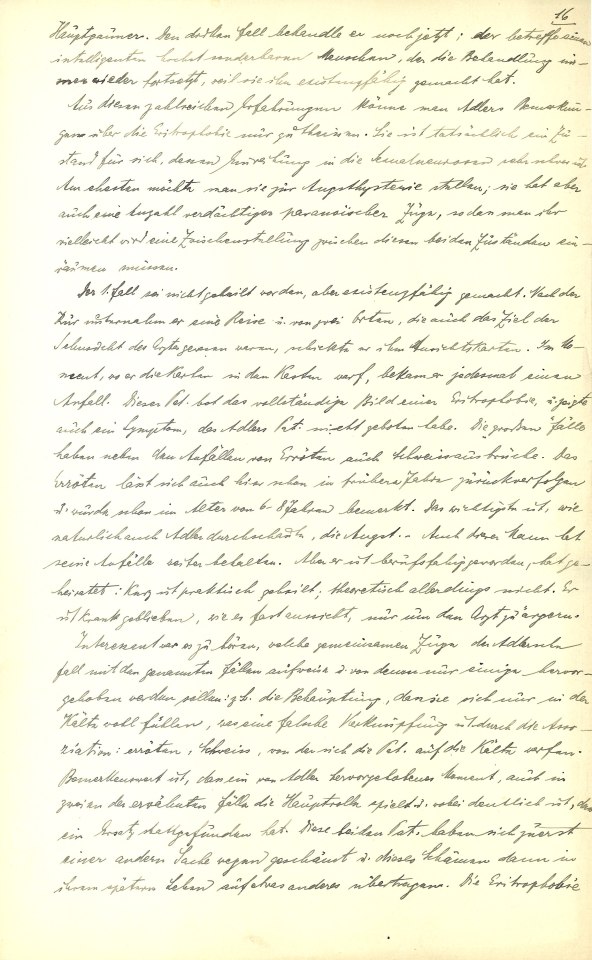 16
Hauptgauner. Den dritten Fall behandle er noch jetzt; der betreffe einen
intelligenten höchst sonderbaren Menschen, der die Behandlung im-
mer wieder fortsetzt, weil sie ihn existenzfähig gemacht hat.
Aus diesen zahlreichen Erfahrungen könne man Adlers Bemerkun-
gen über die Eritrophobie nur gutheissen. Sie ist tatsächlich ein Zu-
stand für sich, dessen Einreihung in die Sexualneurosen sehr schwer ist.
Am ehesten möchte man sie zur Angsthysterie stellen; sie hat aber
auch eine Anzahl verdächtiger paranoischer Züge, so dass man ihr
vielleicht wird eine Zwischenstellung zwischen diesen beiden Zuständen ein-
räumen müssen.
Der 1. Fall sei nicht geheilt worden, aber existenzfähig gemacht. Nach der
Kur unternahm er eine Reise u. von zwei Orten, die auch das Ziel der
Sehnsucht des Arztes gewesen waren, schickte er ihm Ansichtskarten. Im Mo-
ment, wo er die Karten in den Kasten warf, bekam er jedesmal einen
Anfall. Dieser Pat. bot das vollständige Bild einer Eritrophobie, u. zeigte
auch ein Symptom, das Adlers Pat. nicht geboten habe. Die großen Fälle
haben neben den Anfällen von Erröten auch Schweissausbrüche. Das
Erröten lässt sich auch hier schon in frühere Jahre zurückverfolgen
u. wurde schon im Alter von 6-8 Jahren bemerkt. Das wichtigste ist, wie
natürlich auch Adler durchschaute, die Angst. – Auch dieser Mann hat
seine Anfälle weiter behalten. Aber er ist berufsfähig geworden, hat ge-
heiratet: Kurz ist praktisch geheilt, theoretisch allerdings nicht. Er
ist krank geblieben, wie es fast aussieht, nur um den Arzt zu ärgern.
Interessant war es zu hören, welche gemeinsamen Züge der Adlersche
Fall mit den genannten Fällen aufweise u. von denen nur einige hervor-
gehoben werden sollen: z.b. die Behauptung, dass sie sich nur in der
Kälte wohl fühlen, was eine falsche Verknüpfung ist durch die Asso-
ziation: erröten, Schweiss, von der sich die Pat. auf die Kälte werfen.
Bemerkenswert ist, dass ein von Adler hervorgehobenes Moment, auch in
zweien der erwähnten Fälle die Hauptrolle spielt u. wobei deutlich ist, dass
ein Ersatz stattgefunden hat. Diese beiden Pat. haben sich zuerst
einer andern Sache wegen geschämt u. dieses Schämen dann in
ihrem spätern Leben auf etwas anderes übertragen. Die Eritrophobie